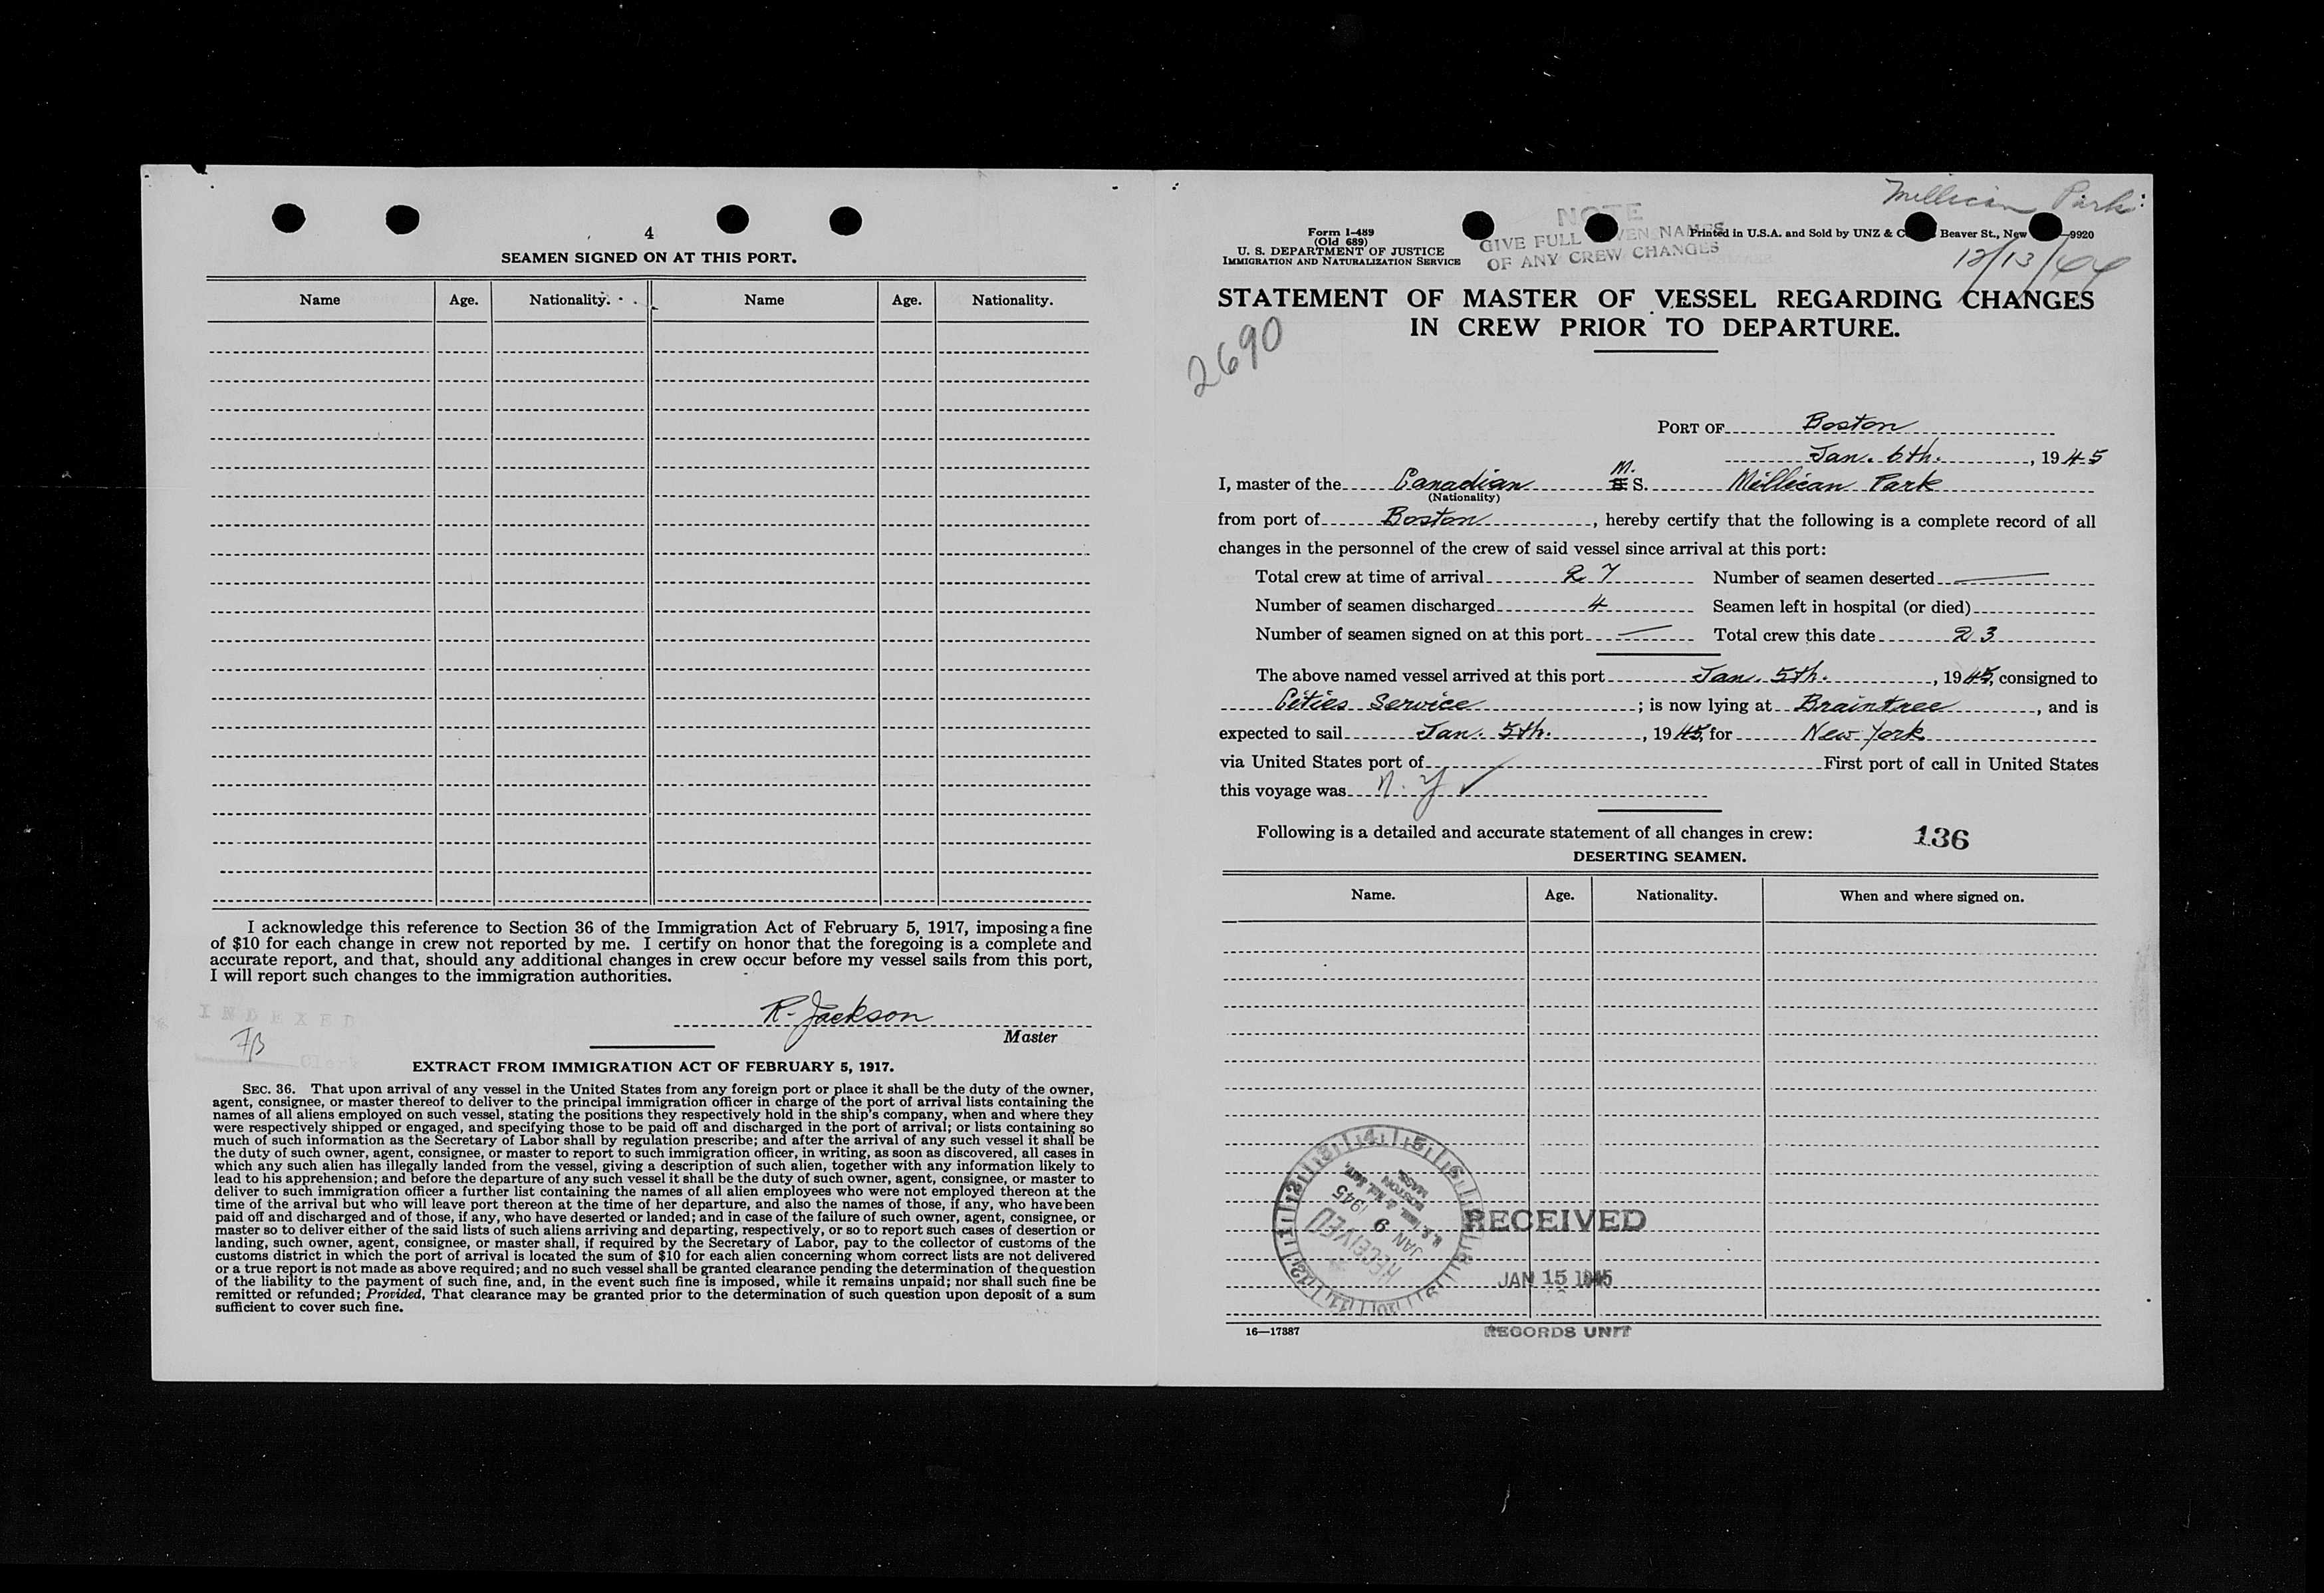 4
SEAMEN SIGNED ON AT THIS PORT.
Name Age. Nationality. Name Age. Nationality.
I acknowledge this reference to Section 36 of the Immigration Act of February 5, 1917, imposing a fine
of $10 for each change in crew not reported by me. I certify on honor that the foregoing is a complete and
accurate report, and that, should any additional changes in crew occur before my vessel sails from this port,
I will report such changes to the immigration authorities.
INDEXED
R. Jackson
Master
Clerk
EXTRACT FROM IMMIGRATION ACT OF FEBRUARY 5, 1917.
SEC. 36. That upon arrival of any vessel in the United States from any foreign port or place it shall be the duty of the owner,
agent, consignee, or master thereof to deliver to the principal immigration officer in charge of the port of arrival lists containing the
names of all aliens employed on such vessel, stating the positions they respectively hold in the ship's company, when and where they
were respectively shipped or engaged, and specifying those to be paid off and discharged in the port of arrival; or lists containing so
much of such information as the Secretary of Labor shall by regulation prescribe; and after the arrival of any such vessel it shall be
the duty of such owner, agent, consignee, or master to report to such immigration officer, in writing, as soon as discovered, all cases in
which any such alien has illegally landed from the vessel, giving a description of such alien, together with any information likely to
lead to his apprehension; and before the departure of any such vessel it shall be the duty of such owner, agent, consignee, or master to
deliver to such immigration officer a further list containing the names of all alien employees who were not employed thereon at the
time of the arrival but who will leave port thereon at the time of her departure, and also the names of those, if any, who have been
paid off and discharged and of those, if any, who have deserted or landed; and in case of the failure of such owner, agent, consignee, or
master so to deliver either of the said lists of such aliens arriving and departing, respectively, or so to report such cases of desertion or
landing, such owner, agent, consignee, or master shall, if required by the Secretary of Labor, pay to the collector of customs of the
customs district in which the port of arrival is located the sum of $10 for each alien concerning whom correct lists are not delivered
or a true report is not made as above required; and no such vessel shall be granted clearance pending the determination of the question
of the liability to the payment of such fine, and, in the event such fine is imposed, while it remains unpaid; nor shall such fine be
remitted or refunded; Provided, That clearance may be granted prior to the determination of such question upon deposit of a sum
sufficient to cover such fine.
Millican Park
Form I-489
(Old 689)
U. S. DEPARTMENT OF JUSTICE
IMMIGRATION AND NATURALIZATION SERVICE
NOTE
GIVE FULL GIVEN NAMES
OF ANY CREW CHANGES
Printed in U.S.A. and Sold by UNZ & C Beaver St., New —9920
12/13/44
STATEMENT OF MASTER OF VESSEL REGARDING CHANGES
IN CREW PRIOR TO DEPARTURE.
2690
PORT OF Boston
Jan. 6th. , 1945
I, master of the Canadian M. S. Millican Park
(Nationality)
from port of Boston , hereby certify that the following is a complete record of all
changes in the personnel of the crew of said vessel since arrival at this port:
Total crew at time of arrival 27 Number of seamen deserted —
Number of seamen discharged 4 Seamen left in hospital (or died)
Number of seamen signed on at this port — Total crew this date 23
The above named vessel arrived at this port Jan. 5th. , 1945, consigned to
Cities Service ; is now lying at Braintree , and is
expected to sail Jan. 5th. , 1945, for New York
via United States port of First port of call in United States
this voyage was N. Y ✓
Following is a detailed and accurate statement of all changes in crew: 136
DESERTING SEAMEN.
Name. Age. Nationality. When and where signed on.
RECEIVED
JAN 6 1945
BOSTON
MASS
RECEIVED
JAN 15 1945
RECORDS UNIT
16—17887